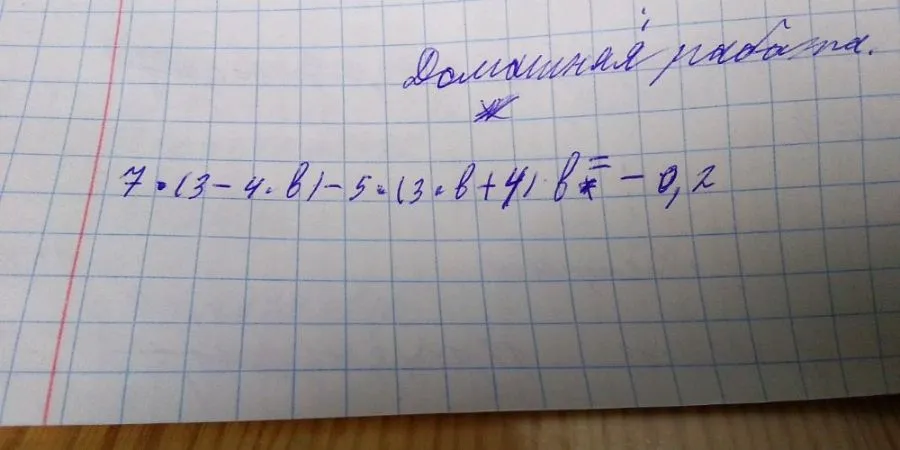 Домашняя работа.
7·(3-4·в)-5·(3·в+4) в = -0,2